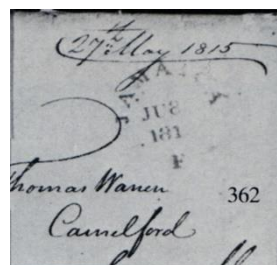 27th May 1815
JAMAICA
JU8
181
F
Thomas Warren
362
Camelford